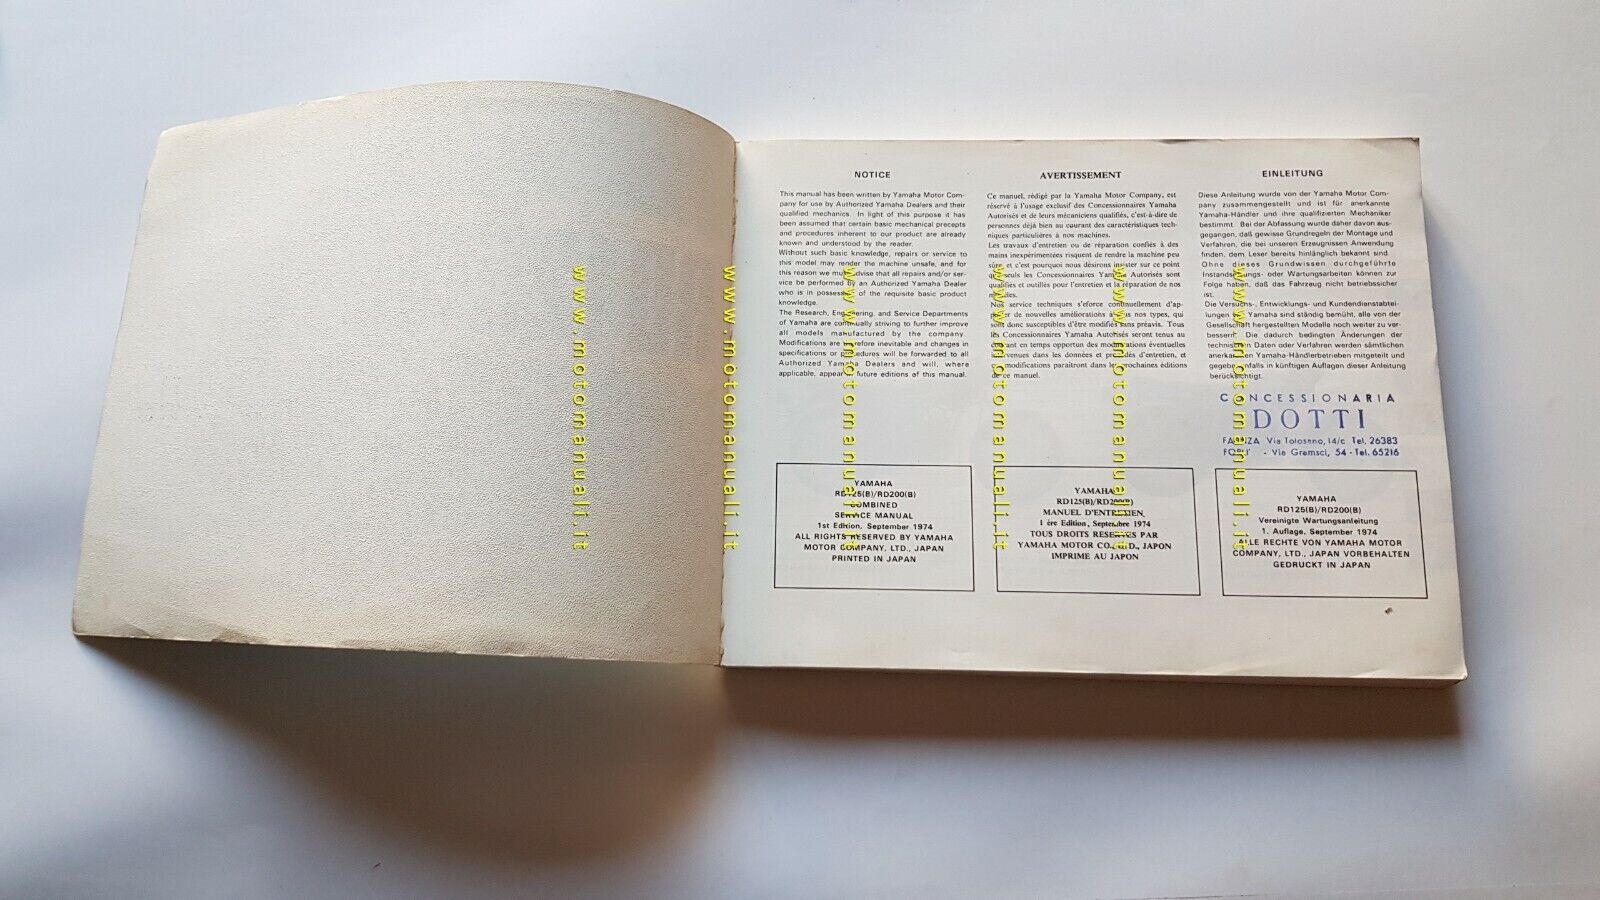 NOTICE
This manual has been written by Yamaha Motor Com-
pany for use by Authorized Yamaha Dealers and their
qualified mechanics. In light of this purpose it has
been assumed that certain basic mechanical precepts
and procedures inherent to our product are already
known and understood by the reader.
Without such basic knowledge, repairs or service to
this model may render the machine unsafe, and for
this reason we must advise that all repairs and/or ser-
vice be performed by an Authorized Yamaha Dealer
who is in possession of the requisite basic product
knowledge.
The Research, Engineering, and Service Departments
of Yamaha are continually striving to further improve
all models manufactured by the company.
Modifications are therefore inevitable and changes in
specifications or procedures will be forwarded to all
Authorized Yamaha Dealers and will, where
applicable, appear in future editions of this manual.
YAMAHA
RD125(B)/RD200(B)
COMBINED
SERVICE MANUAL
1st Edition, September 1974
ALL RIGHTS RESERVED BY YAMAHA
MOTOR COMPANY, LTD., JAPAN
PRINTED IN JAPAN
AVERTISSEMENT
Ce manuel, rédigé par la Yamaha Motor Company, est
réservé à l'usage exclusif des Concessionnaires Yamaha
Autorisés et de leurs mécaniciens qualifiés, c'est-à-dire de
personnes déjà bien au courant des caractéristiques tech-
niques particulières à nos machines.
Les travaux d'entretien ou de réparation confiés à des
mains inexpérimentées risquent de rendre la machine peu
sûre et c'est pourquoi nous désirons insister sur ce point
que seuls les Concessionnaires Yamaha Autorisés sont
qualifiés et outillés pour l'entretien et la réparation de nos
modèles.
Nos service techniques s'eforce continuellement d'ap-
porter de nouvelles améliorations à tous nos types, qui
sont donc susceptibles d'être modifiés sans préavis. Tous
les Concessionnaires Yamaha Autorisés seront tenus au
courant en temps opportun des modifications éventuelles
intervenues dans les données et procédés d'entretien, et
ces modifications paraitront dans les prochaines éditions
de ce manuel.
YAMAHA
RD125(B)/RD200(B)
MANUEL D'ENTRETIEN
1 ère Edition, Septembre 1974
TOUS DROITS RESERVES PAR
YAMAHA MOTOR CO., LTD., JAPON
IMPRIME AU JAPON
EINLEITUNG
Diese Anleitung wurde von der Yamaha Motor Com-
pany zusammengestellt und ist für anerkannte
Yamaha-Händler und ihre qualifizierten Mechaniker
bestimmt. Bei der Abfassung wurde daher davon aus-
gegangen, daß gewisse Grundregeln der Montage und
Verfahren, die bei unseren Erzeugnissen Anwendung
finden, dem Leser bereits hinlänglich bekannt sind.
Ohne dieses Grundwissen durchgeführte
Instandsetzungs- oder Wartungsarbeiten können zur
Folge haben, daß das Fahrzeug nicht betriebssicher
ist.
Die Versuchs-, Entwicklungs- und Kundendienstabtei-
lungen der Yamaha sind ständig bemüht, alle von der
Gesellschaft hergestellten Modelle noch weiter zu ver-
bessern. Die dadurch bedingten Änderungen der
technischen Daten oder Verfahren werden sämtlichen
anerkannten Yamaha-Händlerbetrieben mitgeteilt und
gegebenenfalls in künftigen Auflagen dieser Anleitung
berücksichtigt.
CONCESSIONARIA
DOTTI
FAENZA Via Tolosano, 14/c Tel. 26383
FORLI' - Via Gramsci, 54 - Tel. 65216
YAMAHA
RD125(B)/RD200(B)
Vereinigte Wartungsanleitung
1. Auflage, September 1974
ALLE RECHTE VON YAMAHA MOTOR
COMPANY, LTD., JAPAN VORBEHALTEN
GEDRUCKT IN JAPAN
www.motomanuali.it
www.motomanuali.it
www.motomanuali.it
www.motomanuali.it
www.motomanuali.it
www.motomanuali.it